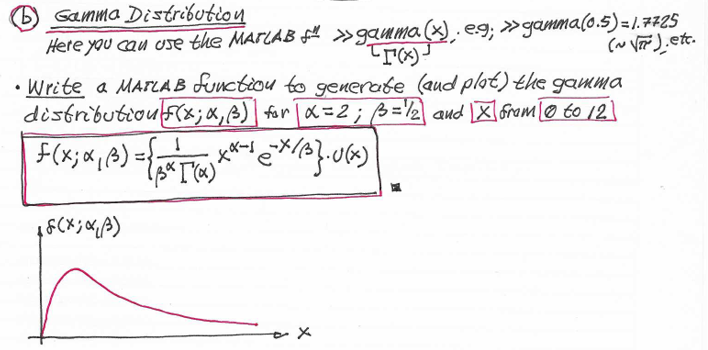 (b) Gamma Distribution
Here you can use the MATLAB fⁿ >> gamma(x), e.g; >> gamma(0.5) = 1.7725
Γ(x) (~√π), etc.
• Write a MATLAB function to generate (and plot) the gamma
distribution f(x; α, β) for α = 2 ; β = 1/2 and X from 0 to 12
f(x; α, β) = { 1 / (β^α Γ(α)) x^(α-1) e^(-x/β) } · U(x)
f(x; α, β)
X